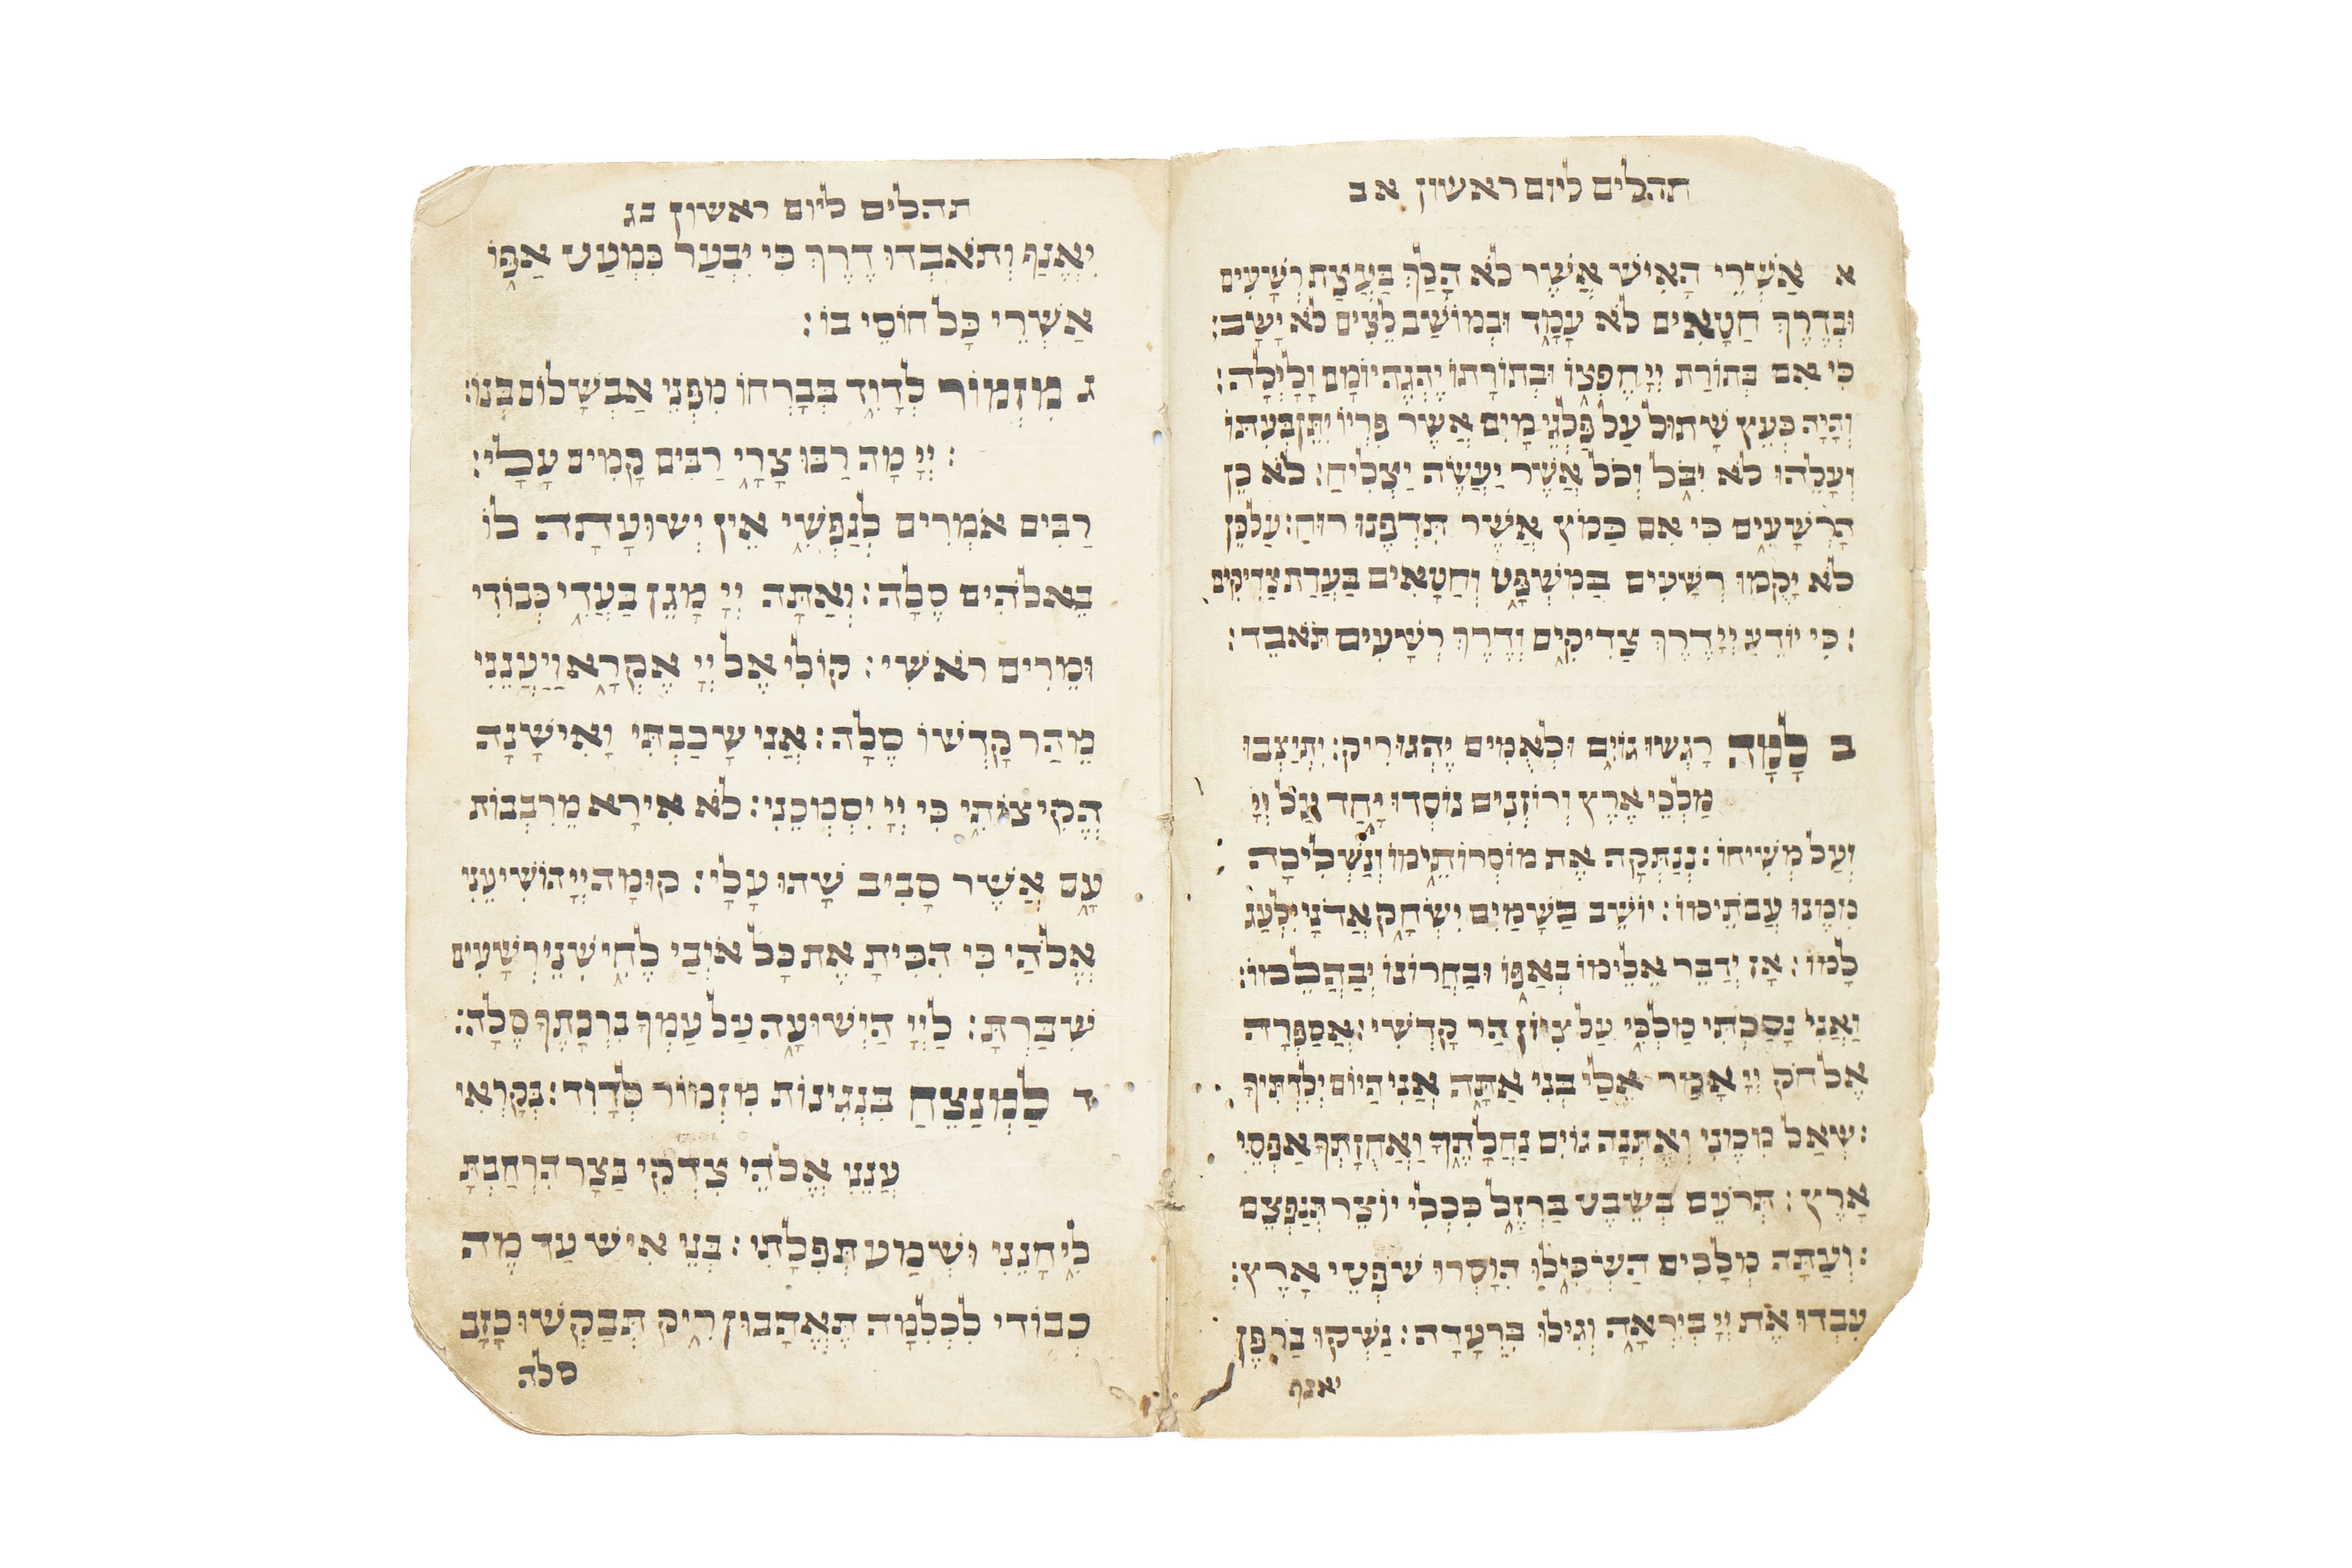 תהלים ליום ראשון א ב
א אַשְׁרֵי הָאִישׁ אֲשֶׁר לֹא הָלַךְ בַּעֲצַת רְשָׁעִים
וּבְדֶרֶךְ חַטָאִים לֹא עָמָד וּבְמוֹשַׁב לֵצִים לֹא יָשָׁב:
כִּי אִם בְּתוֹרַת יְיָ חֶפְצוֹ וּבְתוֹרָתוֹ יֶהְגֶה יוֹמָם וָלָיְלָה:
וְהָיָה כְּעֵץ שָׁתוּל עַל פַּלְגֵי מָיִם אֲשֶׁר פִּרְיוֹ יִתֵּן בְּעִתּוֹ
וְעָלֵהוּ לֹא יִבּל וְכֹל אֲשֶׁר יַעֲשֶׂה יַצְלִיחַ: לֹא כֵן
הָרְשָׁעִים כִּי אִם כַּמוֹץ אֲשֶׁר תִּדְפֶנוּ רוּחַ: עַל כֵּן
לֹא יָקֻמוּ רְשָׁעִים בַּמִשְׁפָּט וְחַטָאִים בַּעֲדַת צַדִיקִים
: כִּי יוֹדֵעַ יְיָ דֶרֶךְ צַדִיקִים וְדֶרֶךְ רְשָׁעִים תֹּאבֵד:
ב לָמָּה רָגְשׁוּ גוֹיִם וּלְאֻמִים יֶהְגוּ רִיק: יִתְיַצְבוּ
מַלְכֵי אֶרֶץ וְרוֹזְנִים נוֹסְדוּ יָחַד עַל יְיָ
וְעַל מְשִׁיחוֹ: נְנַתְּקָה אֶת מוֹסְרוֹתֵימוֹ וְנַשְׁלִיכָה
מִמֶנוּ עֲבֹתֵימוֹ: יוֹשֵׁב בַּשָׁמַיִם יִשְׂחָק אֲדֹנָי יִלְעַג
לָמוֹ: אָז יְדַבֵּר אֵלֵימוֹ בְאַפּוֹ וּבַחֲרוֹנוֹ יְבַהֲלֵמוֹ:
וַאֲנִי נָסַכְתִּי מַלְכִּי עַל צִיּוֹן הַר קָדְשִׁי: אֲסַפְּרָה
אֶל חֹק יְיָ אָמַר אֵלַי בְּנִי אַתָּה אֲנִי הַיּוֹם יְלִדְתִּיךָ
: שְׁאַל מִמֶנִי וְאֶתְּנָה גוֹיִם נַחֲלָתֶךָ וַאֲחֻזָתְךָ אַפְסֵי
אָרֶץ: תְּרֹעֵם בְּשֵׁבֶט בַּרְזֶל כִּכְלִי יוֹצֵר תְּנַפְּצֵם
: וְעַתָּה מְלָכִים הַשְׂכִּילוּ הִוָסְרוּ שֹׁפְטֵי אָרֶץ:
עִבְדוּ אֶת יְיָ בְּיִרְאָה וְגִילוּ בִּרְעָדָה: נַשְׁקוּ בַר פֶּן
יאנף
תהלים ליום ראשון ב ג
יֶאֱנַף וְתֹאבְדוּ דֶרֶךְ כִּי יִבְעַר כִּמְעַט אַפּוֹ
אַשְׁרֵי כָּל חוֹסֵי בוֹ:
ג מִזְמוֹר לְדָוִד בְּבָרְחוֹ מִפְּנֵי אַבְשָׁלוֹם בְּנוֹ:
: יְיָ מָה רַבּוּ צָרָי רַבִּים קָמִים עָלָי:
רַבִּים אֹמְרִים לְנַפְשִׁי אֵין יְשׁוּעָתָה לוֹ
בֵאלֹהִים סֶלָה: וְאַתָּה יְיָ מָגֵן בַּעֲדִי כְּבוֹדִי
וּמֵרִים רֹאשִׁי: קוֹלִי אֶל יְיָ אֶקְרָא וַיַעֲנֵנִי
מֵהַר קָדְשׁוֹ סֶלָה: אֲנִי שָׁכַבְתִּי וָאִישָׁנָה
הֱקִיצוֹתִי כִּי יְיָ יִסְמְכֵנִי: לֹא אִירָא מֵרִבְבוֹת
עָם אֲשֶׁר סָבִיב שָׁתוּ עָלָי: קוּמָה יְיָ הוֹשִׁיעֵנִי
אֱלֹהַי כִּי הִכִּיתָ אֶת כָּל אוֹיְבַי לֶחִי שִׁנֵי רְשָׁעִים
שִׁבַּרְתָּ: לַיְיָ הַיְשׁוּעָה עַל עַמְךָ בִרְכָתֶךָ סֶלָה:
ד לַמְנַצֵחַ בִּנְגִינוֹת מִזְמוֹר לְדָוִד: בְּקָרְאִי
עֲנֵנִי אֱלֹהֵי צִדְקִי בַּצָר הִרְחַבְתָּ
לִי חָנֵנִי וּשְׁמַע תְּפִלָתִי: בְּנֵי אִישׁ עַד מֶה
כְבוֹדִי לִכְלִמָה תֶּאֱהָבוּן רִיק תְּבַקְשׁוּ כָזָב
סלה